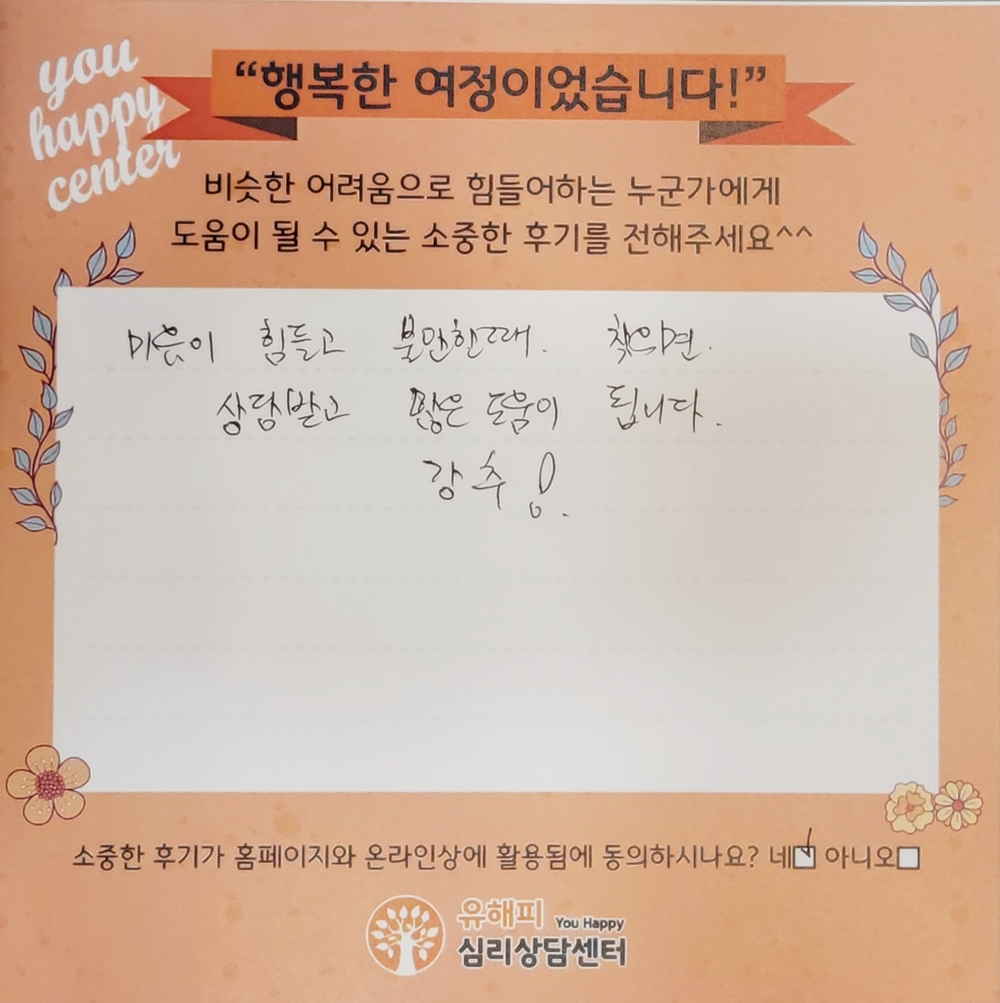 you
happy
center
“행복한 여정이었습니다!”
비슷한 어려움으로 힘들어하는 누군가에게
도움이 될 수 있는 소중한 후기를 전해주세요^^
마음이 힘들고 불안한때. 찾의면.
상담받고 많은 도움이 됩니다.
강추!.
소중한 후기가 홈페이지와 온라인상에 활용됨에 동의하시나요? 네 아니오
유해피 You Happy
심리상담센터